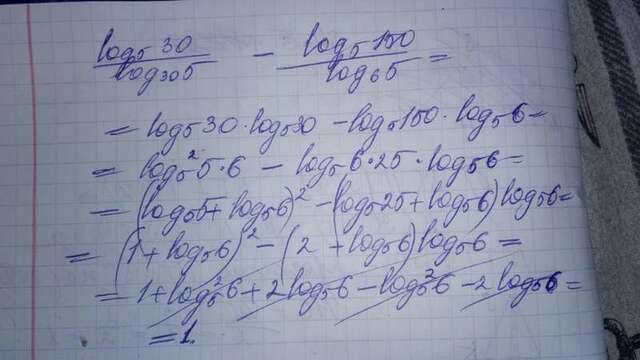 log₅ 30 / log₃₀ 5 − log₅ 150 / log₆ 5 =
= log₅ 30 · log₅ 30 − log₅ 150 · log₅ 6 =
= log₅² 5·6 − log₅ 6·25 · log₅ 6 =
= (log₅ 5 + log₅ 6)² − (log₅ 25 + log₅ 6) log₅ 6 =
= (1 + log₅ 6)² − (2 + log₅ 6) log₅ 6 =
= 1 + log₅² 6 + 2 log₅ 6 − log₅² 6 − 2 log₅ 6 =
= 1.